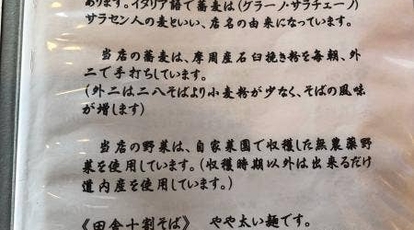 あります。イタリア語で蕎麦は(グラーノ・サラチェーノ)
サラセン人の麦といい、店名の由来になっています。
当店の蕎麦は、摩周産石臼挽き粉を毎朝、外
二で手打ちしています。
(外二は二八そばより小麦粉が少なく、そばの風味
が増します)
当店の野菜は、自家菜園で収穫した無農薬野
菜を使用しています。(収穫時期以外は出来るだけ
道内産を使用しています。)
《田舎十割そば》 やや太い麺です。